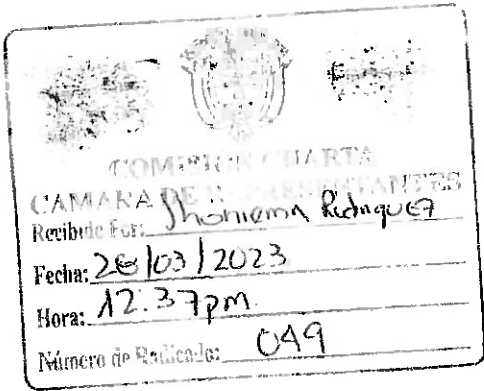 COMISION CUARTA
CAMARA DE REPRESENTANTES
Recibido Por: Rodriguez
Fecha: 28/03/2023
Hora: 12:37pm.
Número de Radicado: 049